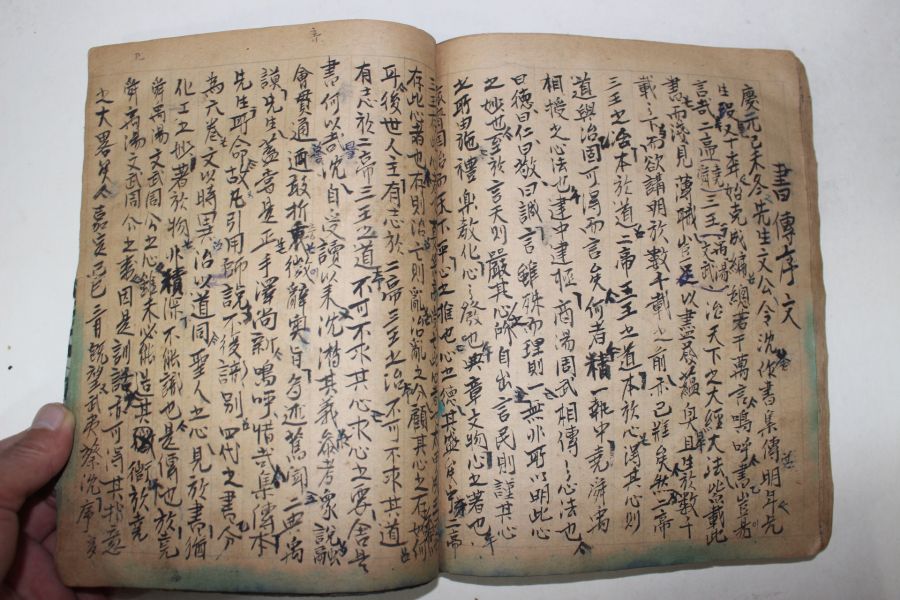 書傳序文
慶元己未冬先生文公令沈作書集傳明年先
生歿又十年始克成編總若干萬言嗚呼書豈易
言哉二帝堯舜三王禹湯文武治天下之大經大法皆載此
書而淺見薄識豈足以盡發蘊奧且生於數千
載之下而欲講明於數千載之前亦已難矣然二帝
三王之治本於道二帝三王之道本於心得其心則
道與治固可得而言矣何者精一執中堯舜禹
相授之心法也建中建極商湯周武相傳之心法也
曰德曰仁曰敬曰誠言雖殊而理則一無非所以明此心
之妙也至於言天則嚴其心所自出言民則謹其心
之所由施禮樂教化心之發也典章文物心之著也
家齊國治而天下平心之推也心之德其盛矣乎二帝
三王
存此心者也存則治亡則亂治亂之分顧其心之存不如何
耳後世人主有志於二帝三王之治不可不求其道
有志於二帝三王之道不可不求其心求心之要舍是
書何以哉沈自受讀以來沈潛其義參考衆說融
會貫通迺敢折衷微辭奧旨多述舊聞二典禹
謨先生蓋嘗是正手澤尚新嗚呼惜哉集傳本
先生所命故凡引用師說不復識別四代之書分
為六卷文以時異治以道同聖人之心見於書猶
化工之妙著於物非精深不能識也是傳也於堯
舜禹湯文武周公之心雖未必能造其微於堯
舜禹湯文武周公之書因是訓詁亦可得其指意
之大畧矣嘉定己巳三月旣望武夷蔡沈序